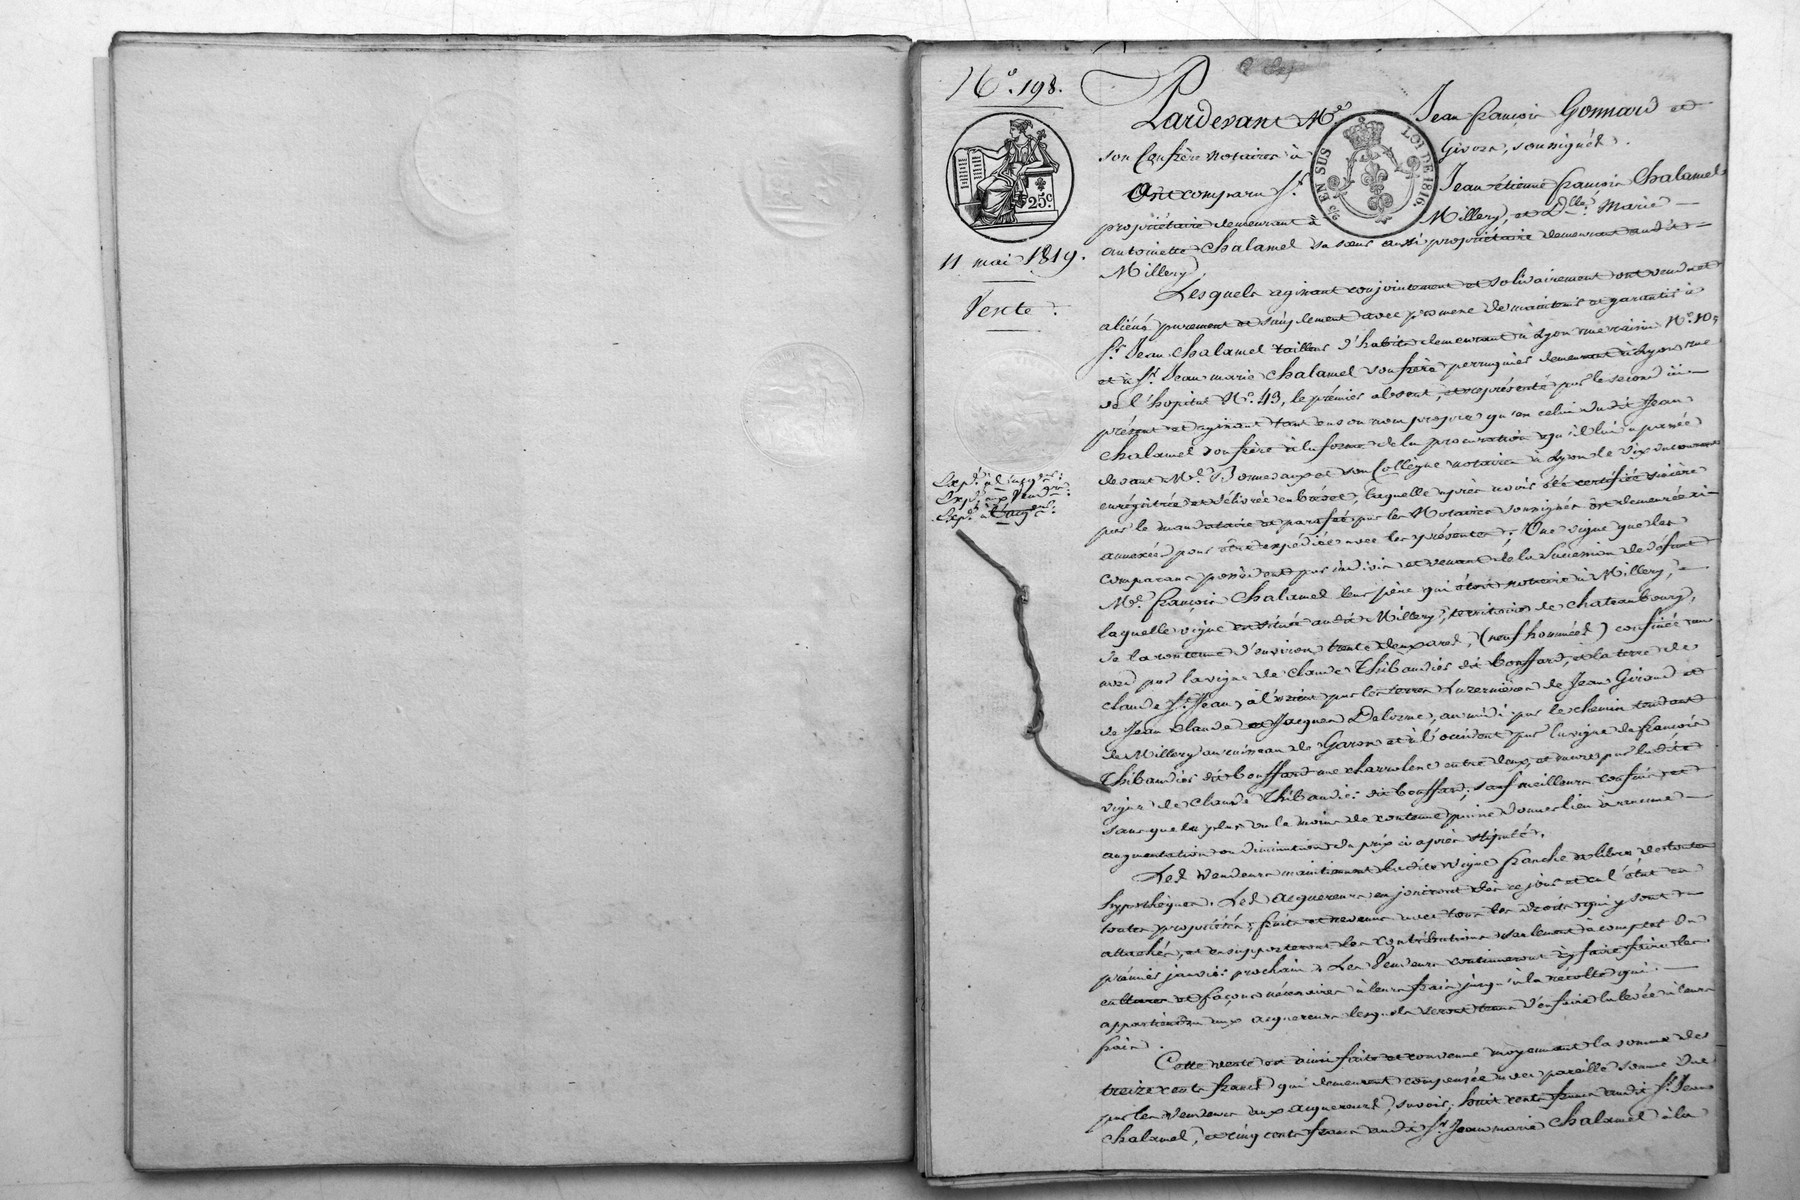 N.° 198.
25.c
11 mai 1819.
Vente.
Pardevant Me. Jean françois Gonnard et
EN SUS LOI DE 1816.
son Confrère notaires à Givors, soussignés.
Ont comparu Sr. Jean étienne françois Chalamel
propriétaire demeurant à Millery, et Dlle. Marie
antoinette Chalamel sa sœur aussi propriétaire demeurant audit
Millery,
Lesquels agissant conjointement et solidairement ont vendu et
aliéné purement et simplement avec promesse de maintenir et garantir à
Sr. Jean Chalamel tailleur d'habits demeurant à Lyon rue raisin N.° 10,
et à Sr. Jean marie Chalamel son frère perruquier demeurant à Lyon rue
de l'hopital N.° 43, le premier absent, et représenté par le second ici
présent et agissant tant en son nom propre qu'en celui dudit Jean
Chalamel son frère à la forme de la procuration qu'il lui a passée
devant Me. et son Collègue notaires à Lyon le dix du courant
enregistrée et délivrée en brevet, laquelle après avoir été certifiée sincère
par le mandataire et paraphée par les Notaires soussignés est demeurée ci
annexée pour être expédiée avec les présentes. Une vigne que les
comparans possèdent par indivis et venant de la succession de défunt
Me. françois Chalamel leur père qui étoit notaire à Millery,
laquelle vigne est située audit Millery, territoire de chateaubourg,
de la contenue d'environ trente deux ares, (neuf hommées) confinée au
nord par la vigne de Claude Thibaudier dit bouffard, et la terre de
Claude St. Jean, à l'orient par les terres Luzernières de Jean Giroud et
de Jean Claude et Jacques Delorme, au midi par le chemin tendant
de Millery au ruisseau de Garon et à l'occident par la vigne de françois
Thibaudier dit bouffard une charrolene entre deux, et encore par ladite
vigne de Claude Thibaudier dit bouffard; sauf meilleurs confins, et
sans que le plus ou le moins de contenue puisse donner lieu à aucune
augmentation ou diminution du prix ci après stipulé.
Les Vendeurs maintiennent ladite vigne franche et libre de toutes
hypothèques. Les acquereurs en jouiront dès ce jour et en l'état en
toutes propriétés, fruits et revenus avec tous les droits qui y sont
attachés, et en supporteront les contributions seulement à compter du
premier janvier prochain. Les Vendeurs continueront à y faire faire les
cultures et façons nécessaires à leurs frais jusqu'à la récolte qui
appartiendra aux acquereurs lesquels seront tenus d'en faire la levée à leurs
frais.
Cette vente est ainsi faite et convenue moyennant la somme de
treize cents francs qui demeurent compensée avec pareille somme due
par les Vendeurs aux acquereurs, savoir; huit cents francs audit Sr. Jean
Chalamel, et cinq cents francs audit Sr. Jean marie Chalamel à la